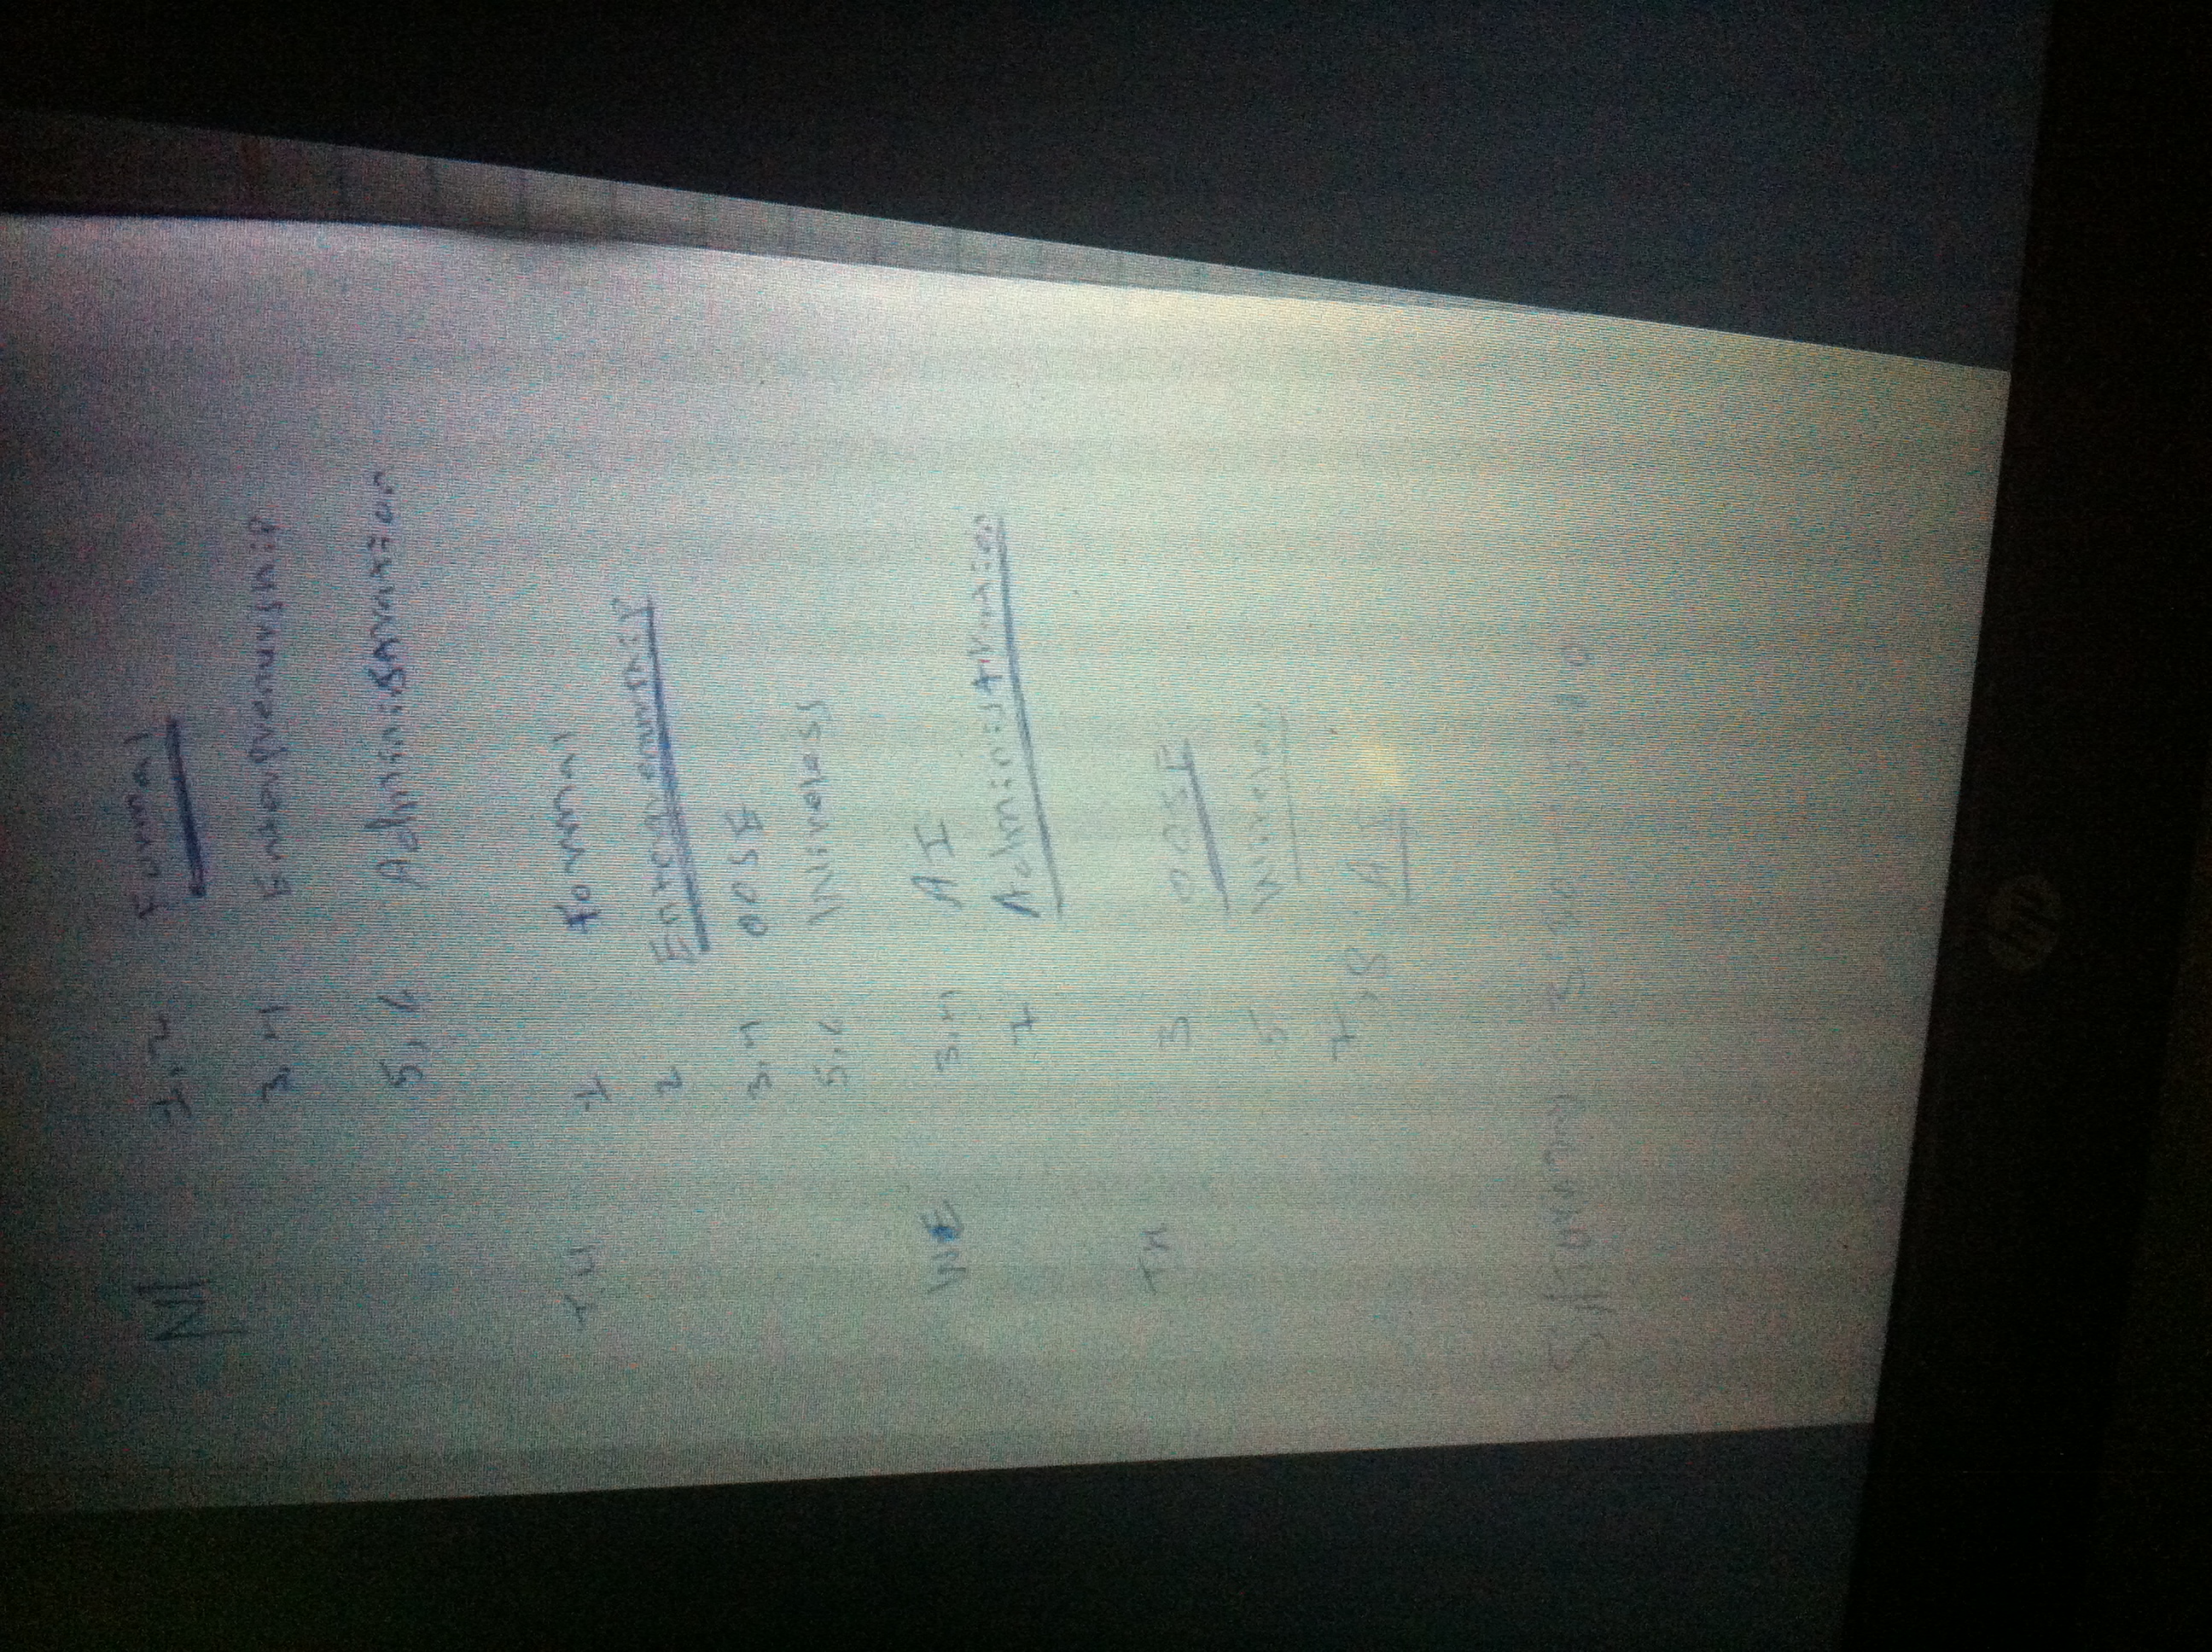 M 1,2 Formal
3,4 Enterprenurship
5,6 Administration
TU 1 formal
2 Enterprenurship
3,4 OOSE
5,6 Wireless
WE 3,4 AI
7 Administration
TH 3 OOSE
5 Wireless
7,8 AI
hp